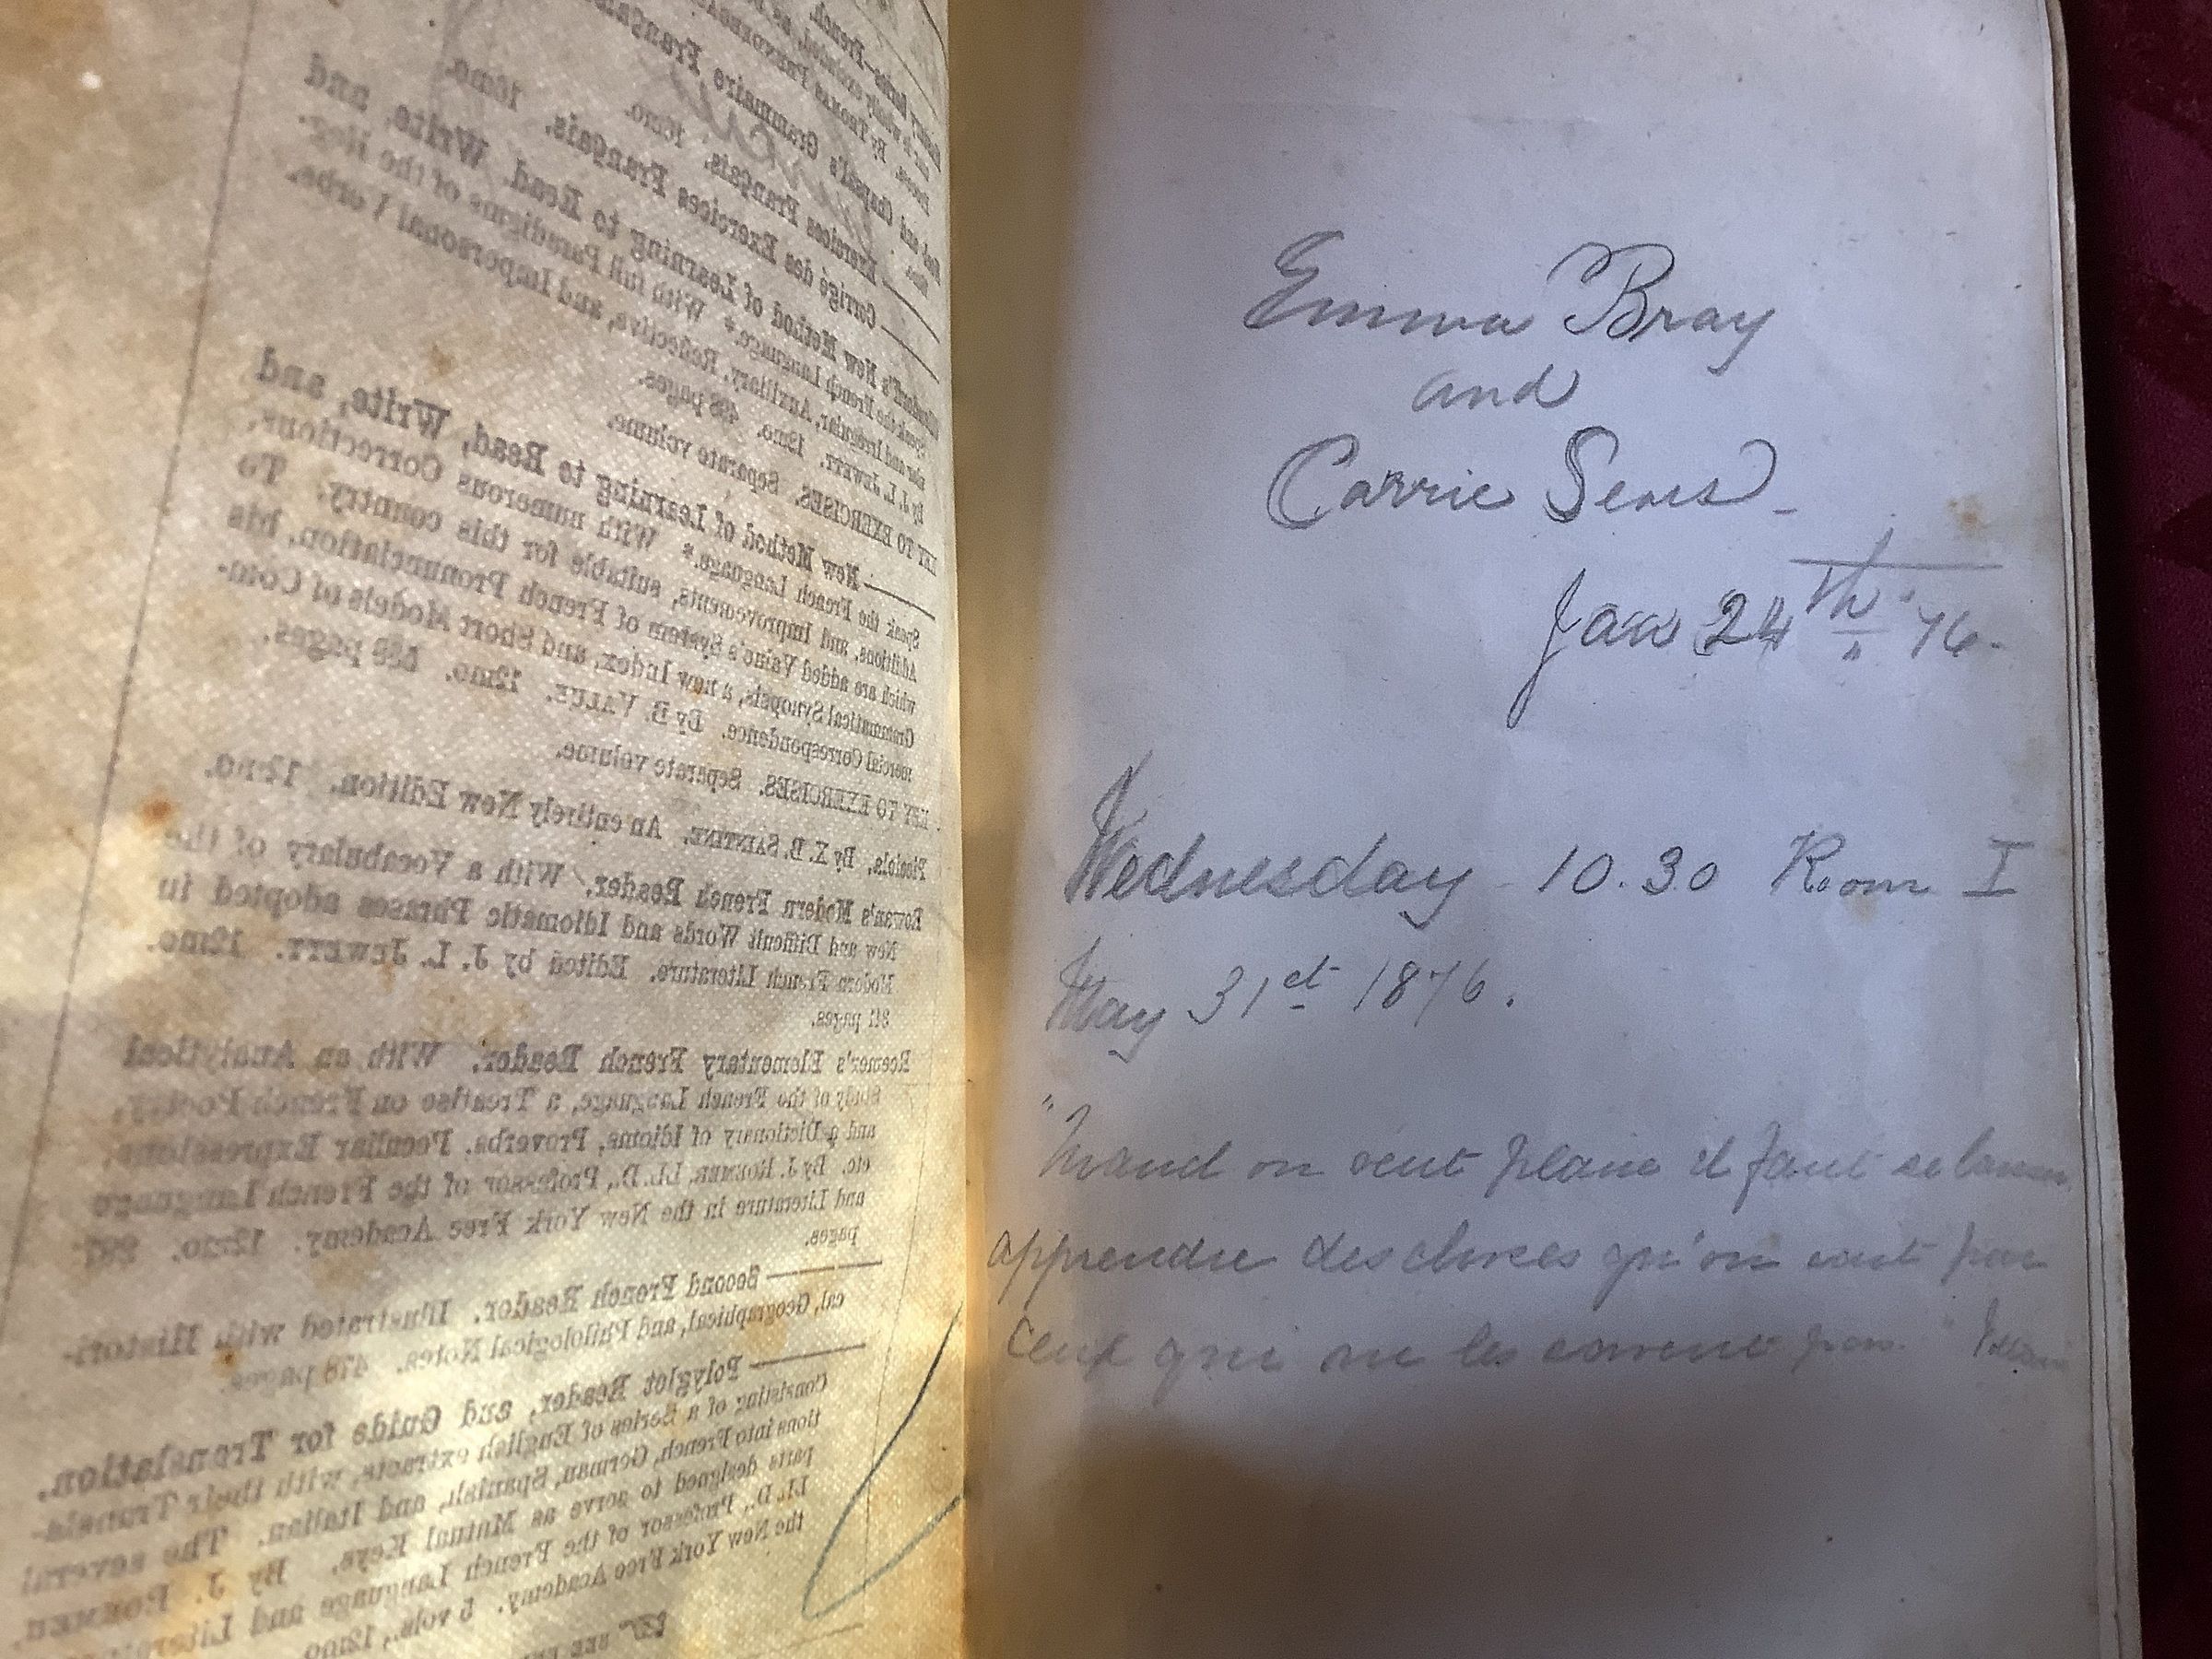 French.
By Thomas
and Chapsal's Grammaire Française
Exercices Français. 16mo.
Corrigé des Exercices Français. 16mo.
New Method of Learning to Read, Write, and
Speak the French Language.* With full Paradigms of the Reg-
ular and Irregular, Auxiliary, Reflective, and Impersonal Verbs.
By J. L. Jewett. 12mo. 498 pages.
KEY TO EXERCISES. Separate volume.
—— New Method of Learning to Read, Write, and
Speak the French Language.* With numerous Corrections,
Additions, and Improvements, suitable for this country. To
which are added Value's System of French Pronunciation, his
Grammatical Synopsis, a new Index, and Short Models of Com-
mercial Correspondence. By B. Value. 12mo. 588 pages.
KEY TO EXERCISES. Separate volume.
Picciola, By X. B. Saintine. An entirely New Edition. 12mo.
Rowan's Modern French Reader. With a Vocabulary of the
New and Difficult Words and Idiomatic Phrases adopted in
Modern French Literature. Edited by J. L. Jewett. 12mo.
341 pages.
Roemer's Elementary French Reader. With an Analytical
Study of the French Language, a Treatise on French Poetry,
and a Dictionary of Idioms, Proverbs, Peculiar Expressions,
etc. By J. Roemer, LL.D., Professor of the French Language
and Literature in the New York Free Academy. 12mo. 297
pages.
—— Second French Reader. Illustrated with Histori-
cal, Geographical, and Philological Notes. 478 pages.
—— Polyglot Reader, and Guide for Translation.
Consisting of a Series of English extracts, with their Transla-
tions into French, German, Spanish, and Italian. The several
parts designed to serve as Mutual Keys. By J. Roemer,
LL.D., Professor of the French Language and Literature
the New York Free Academy. 5 vols., 12mo.
SEE
Emma Bray
and
Carrie Sears -
Jan 24th '76.
Wednesday 10.30 Room I
May 31st 1876.
"Quand on veut plaire il faut se laisser
apprendre des choses qu'on sait par
ceux qui ne les savent pas."